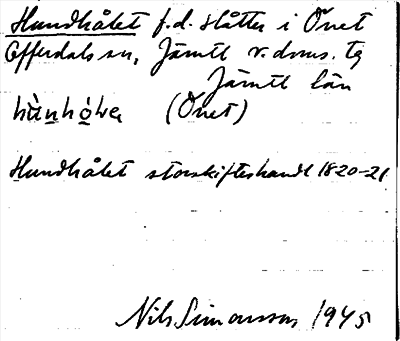 Hundhålet f.d. slåtter i Önet
Offerdals sn, Jämtl v. doms. tg
Jämtl län
(Önet)
Hundhålet storskifteshandl 1820-21
Nils Simonsson 1945